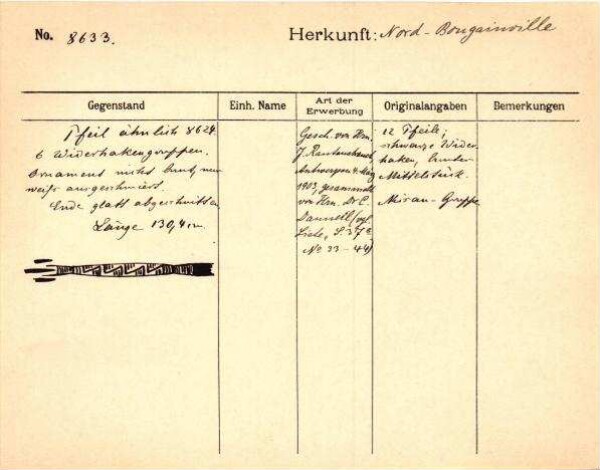 No. 8633.
Herkunft: Nord-Bougainville
Gegenstand
Einh. Name
Art der Erwerbung
Originalangaben
Bemerkungen
Pfeil ähnlich 8624.
6 Widerhakengruppen.
Ornament nicht bunt, nur
weiß ausgeschmiert.
Ende glatt abgeschnitten
Länge 130,4 cm
Gesch. von Hrn.
J. Rautenstrauch
Antwerpen 4. Mai
1903, gesammelt
von Hrn. Dr. C.
Danneil (vgl.
Liste, S. 37
No 33-44)
12 Pfeile;
schwarze Wider-
haken, bunter
Mittelstück.
-Gruppe